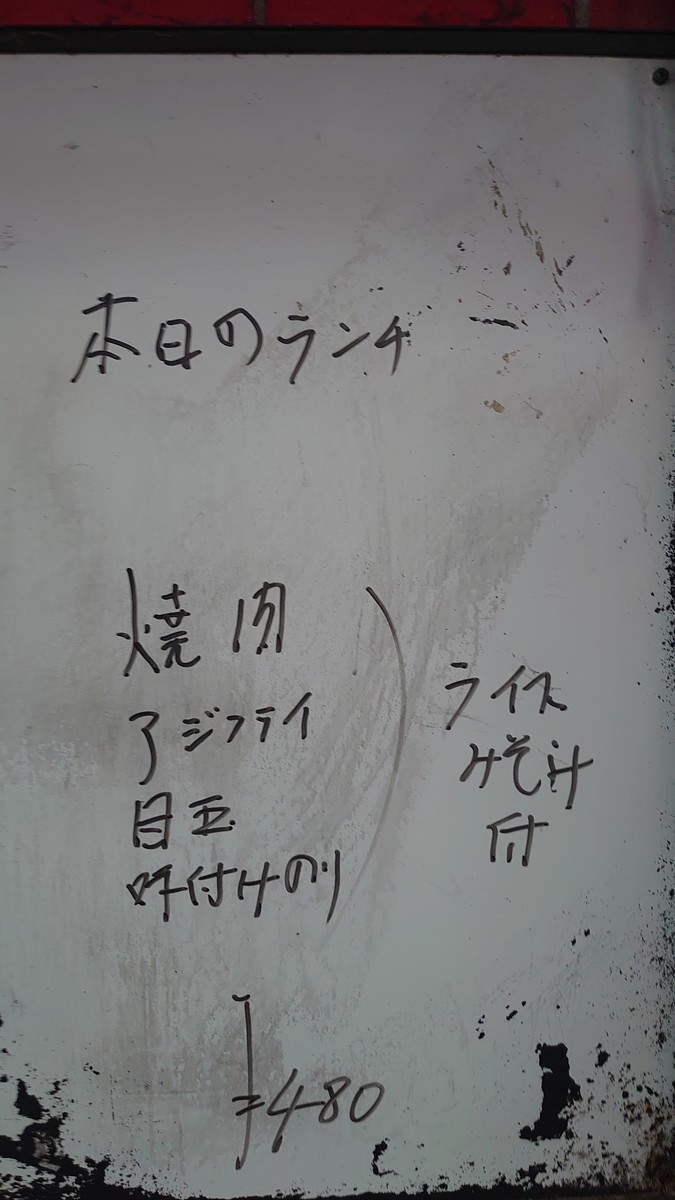 本日のランチ
焼肉
アジフライ
目玉
味付けのり
ライス
みそ汁
付
¥480